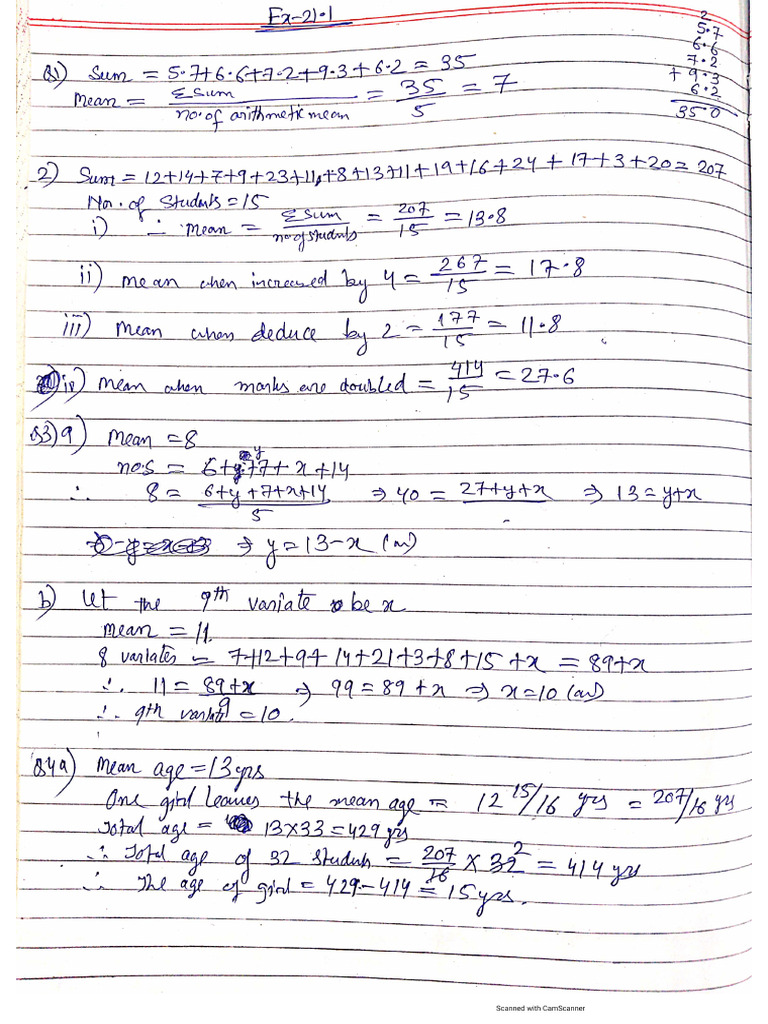 Ex-21.1
2
5.7
6.6
7.2
+ 9.3
6.2
35.0
Q1) Sum = 5.7+6.6+7.2+9.3+6.2 = 35
Mean = Σ Sum / no. of arithmetic mean = 35/5 = 7
2) Sum = 12+14+7+9+23+11+8+13+11+19+16+24+17+3+20 = 207
No. of Students = 15
i) ∴ mean = Σ Sum / no of students = 207/15 = 13.8
ii) mean when increased by 4 = 267/15 = 17.8
iii) Mean when deduce by 2 = 177/15 = 11.8
iv) mean when marks are doubled = 414/15 = 27.6
Q3) a) Mean = 8
nos = 6+y+7+x+14
∴ 8 = 6+y+7+x+14 / 5 ⇒ 40 = 27+y+x ⇒ 13 = y+x
⇒ y = 13-x (an)
b) Let the 9th variate be x
mean = 11.
8 variates = 7+12+9+14+21+3+8+15+x = 89+x
∴ 11 = 89+x / 9 ⇒ 99 = 89+x ⇒ x=10 (an)
∴ 9th variate = 10.
Q4a) Mean age = 13 yrs
One girl leaves the mean age = 12 15/16 yrs = 207/16 yrs
Total age = 13×33 = 429 yrs
∴ Total age of 32 students = 207/16 × 32 2 = 414 yrs
∴ The age of girl = 429-414 = 15 yrs.
Scanned with CamScanner